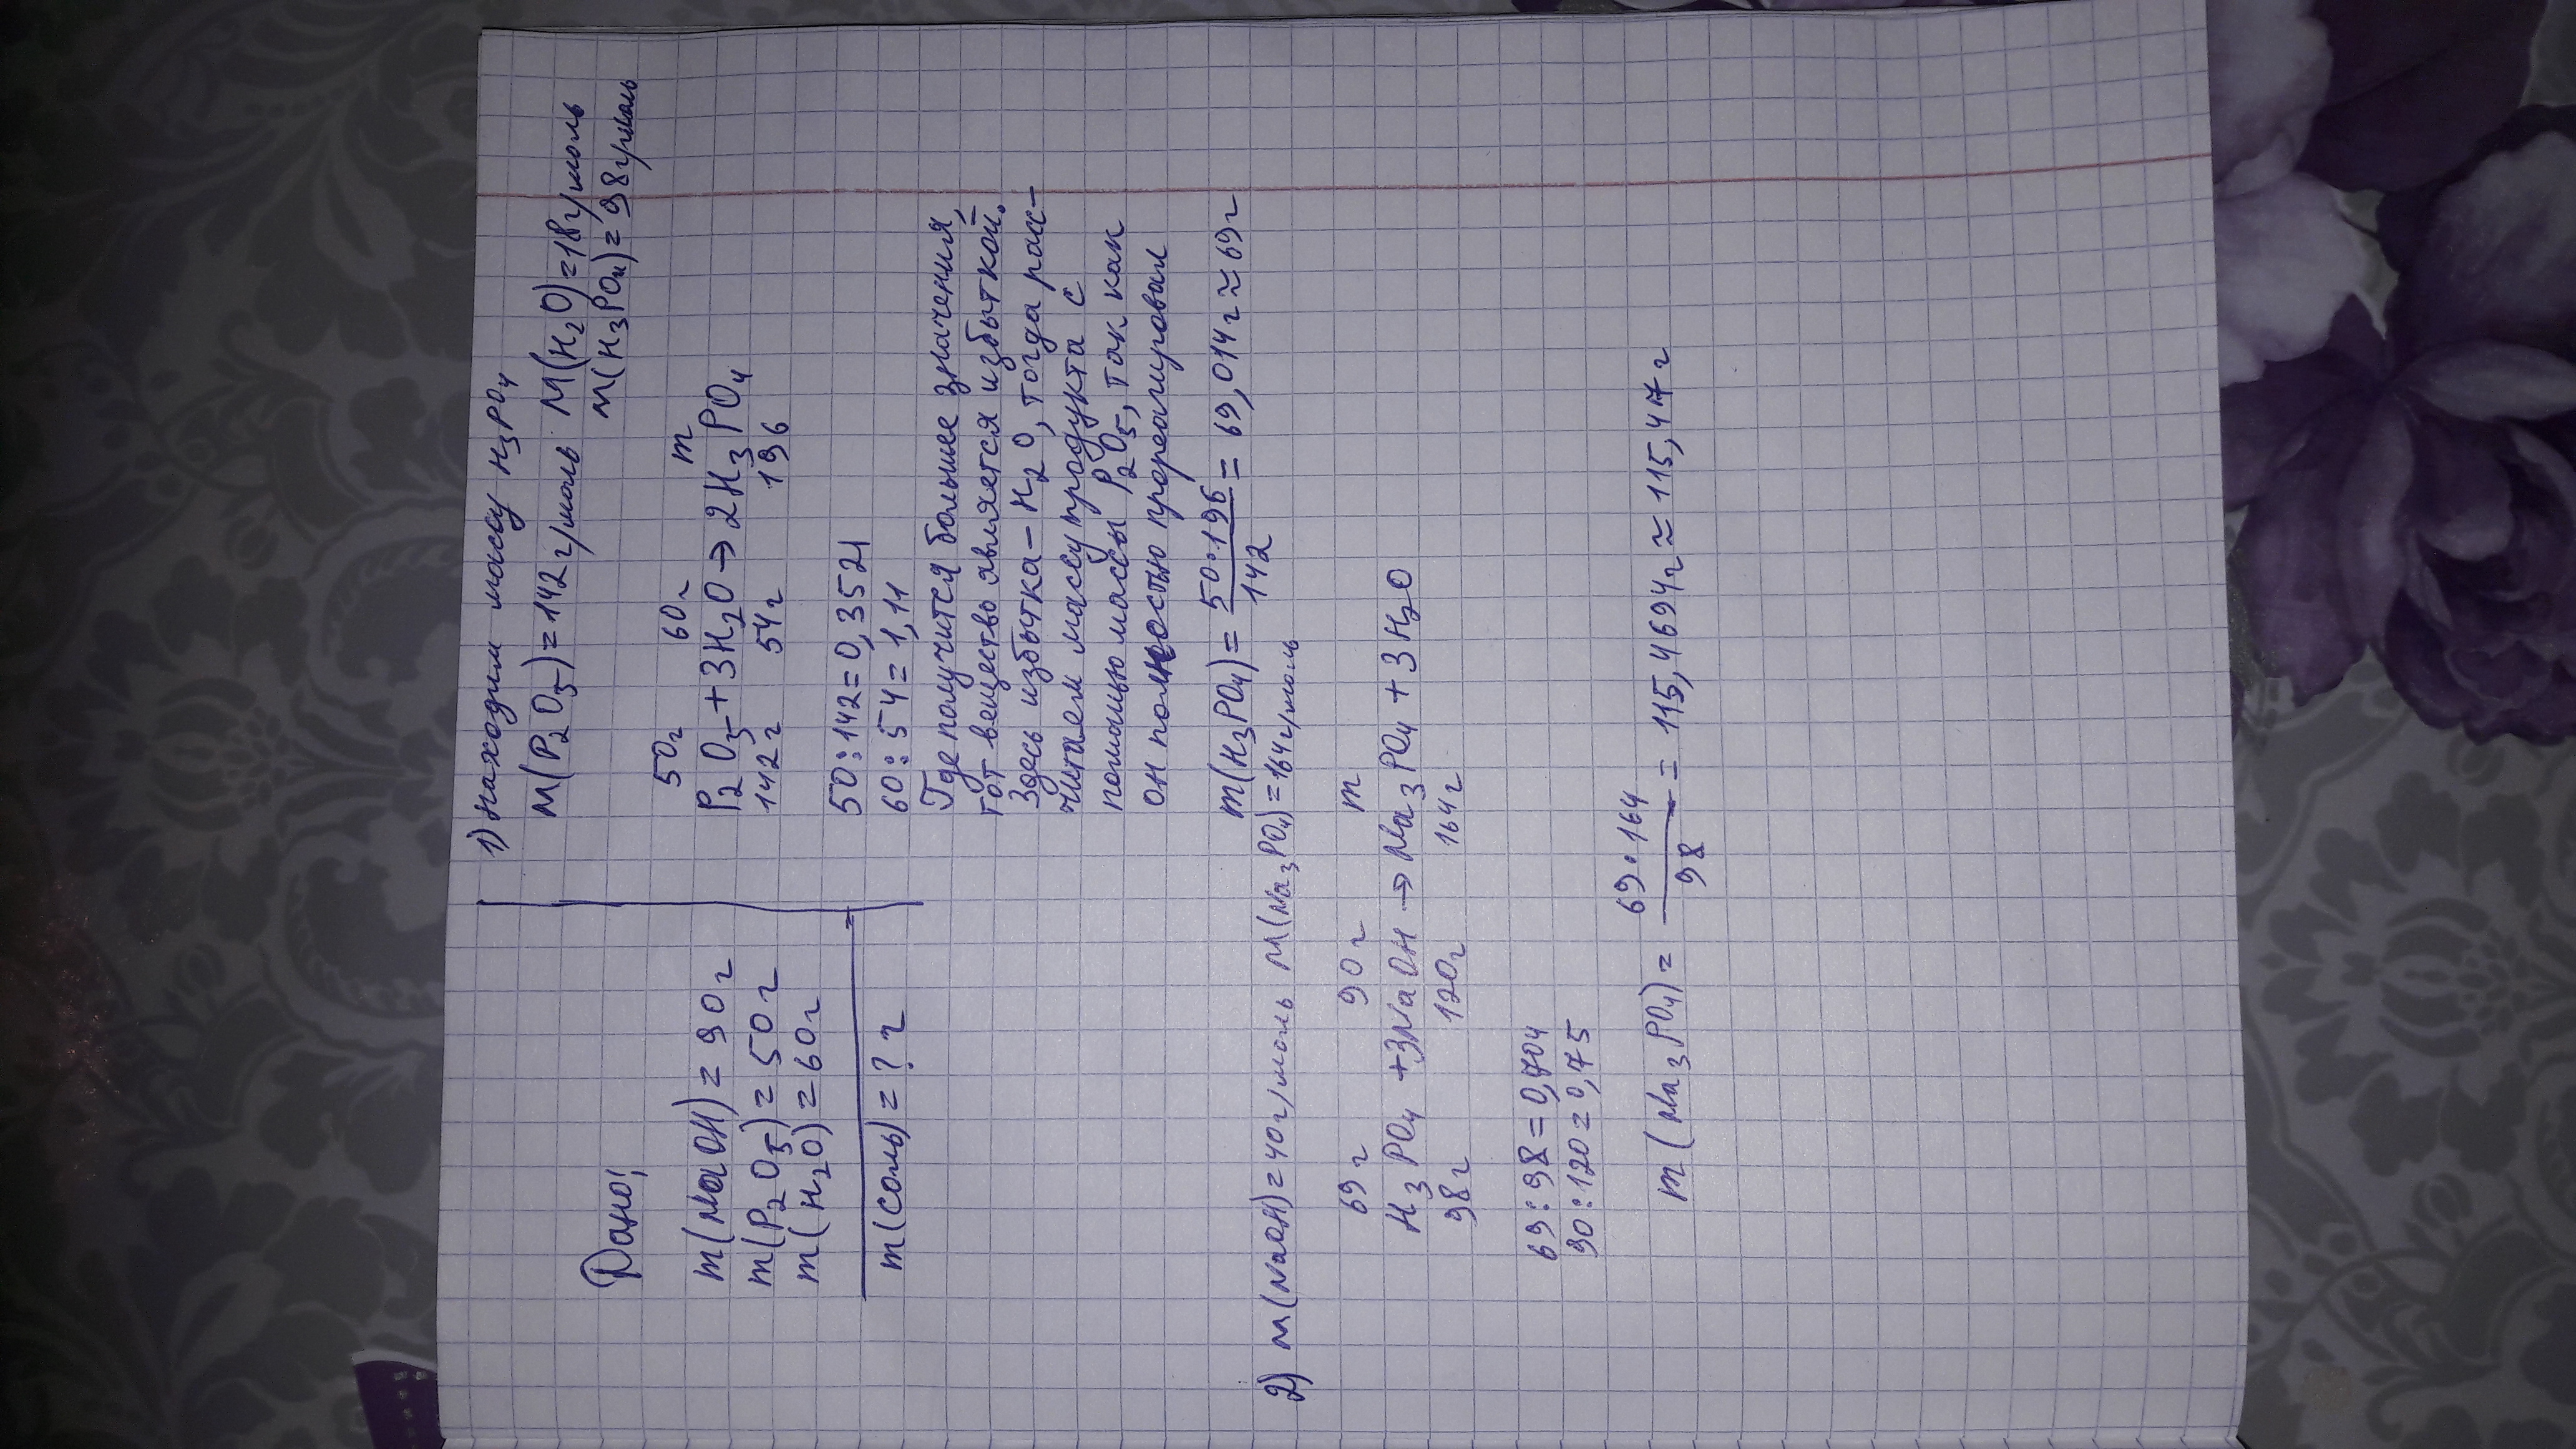 Дано:
m(NaOH) = 90 г
m(P2O5) = 50 г
m(H2O) = 60 г
m(соль) = ? г
1) Находим массу H3PO4
M(P2O5) = 142 г/моль M(H2O) = 18 г/моль
M(H3PO4) = 98 г/моль
50г 60г m
P2O5 + 3H2O → 2H3PO4
142г 54г 196
50:142 = 0,3521
60:54 = 1,11
Где получится большее значения,
тот вещество является избыткой.
Здесь избытка - H2O, тогда рас-
читаем массу продукта с
помощью массы P2O5, так как
он полностью прореагировал
m(H3PO4) = 50·196/142 = 69,014г ≈ 69г
2) M(NaOH) = 40г/моль M(Na3PO4) = 164г/моль
69г 90г m
H3PO4 + 3NaOH → Na3PO4 + 3H2O
98г 120г 164г
69:98 = 0,704
90:120 = 0,75
m(Na3PO4) = 69·164/98 = 115,4694г ≈ 115,47г